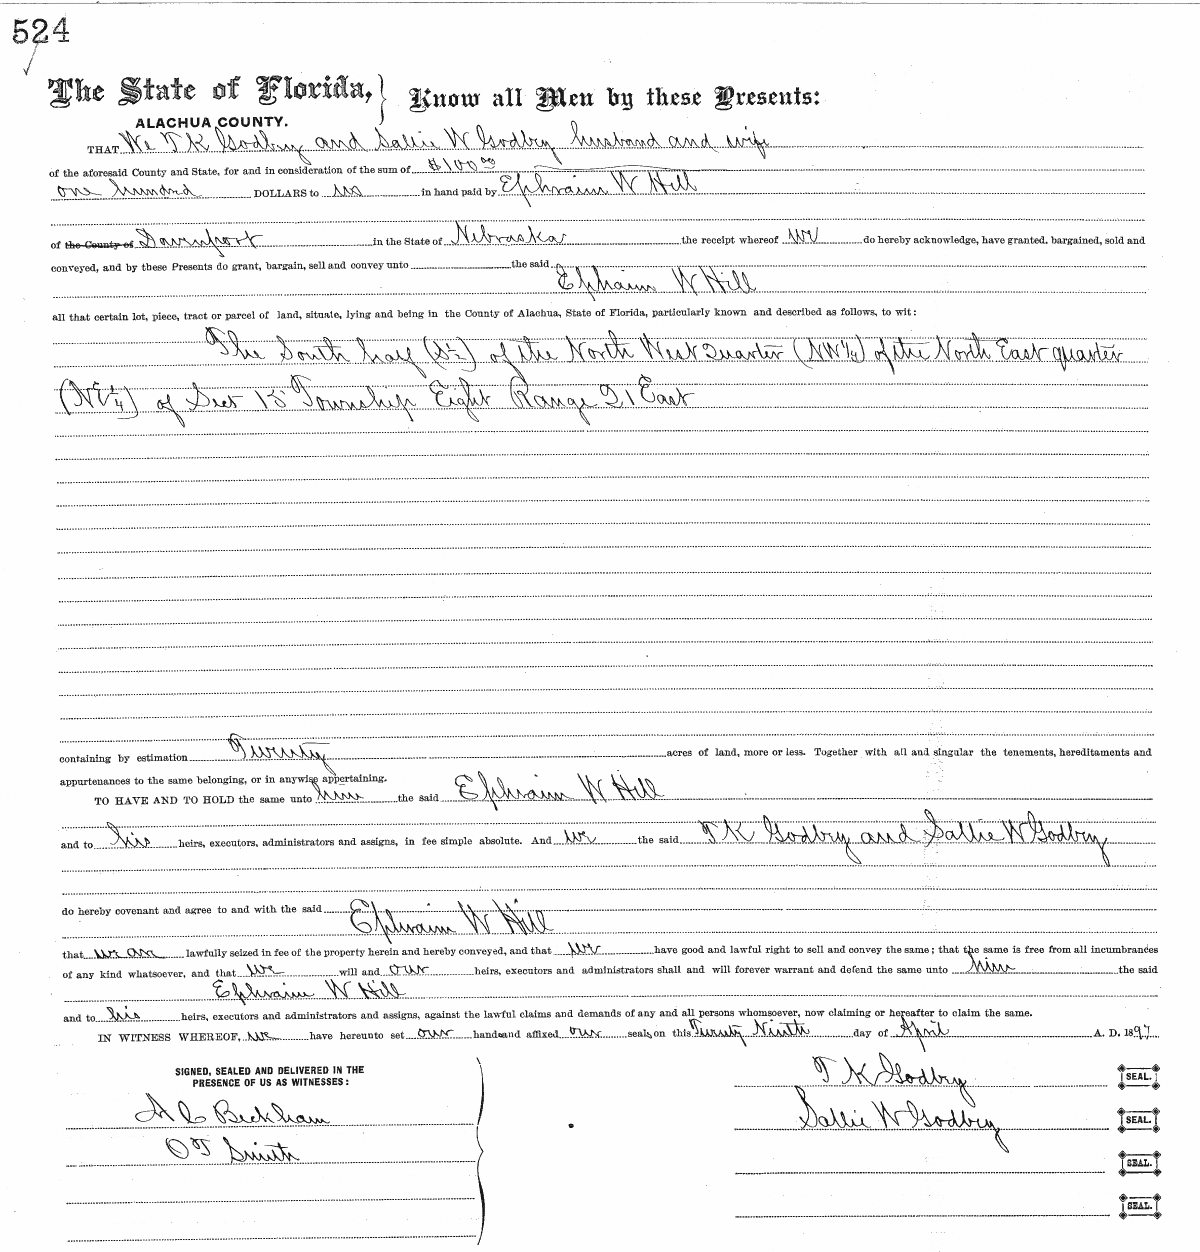 524
The State of Florida, } Know all Men by these Presents:
ALACHUA COUNTY.
THAT We T K Godbey and Sallie W Godbey husband and wife
of the aforesaid County and State, for and in consideration of the sum of $100 00
one hundred DOLLARS to us in hand paid by Ephraim W Hill
of the County of Davenport in the State of Nebraska the receipt whereof we do hereby acknowledge, have granted, bargained, sold and
conveyed, and by these Presents do grant, bargain, sell and convey unto the said
Ephraim W Hill
all that certain lot, piece, tract or parcel of land, situate, lying and being in the County of Alachua, State of Florida, particularly known and described as follows, to wit:
The South half (S½) of the North West Quarter (NW¼) of the North East quarter
(NE¼) of Sect 13 Township Eight Range 21 East
containing by estimation Twenty acres of land, more or less. Together with all and singular the tenements, hereditaments and
appurtenances to the same belonging, or in anywise appertaining.
TO HAVE AND TO HOLD the same unto him the said Ephraim W Hill
and to his heirs, executors, administrators and assigns, in fee simple absolute. And we the said T K Godbey and Sallie W Godbey
do hereby covenant and agree to and with the said
Ephraim W Hill
that we are lawfully seized in fee of the property herein and hereby conveyed, and that we have good and lawful right to sell and convey the same; that the same is free from all incumbrances
of any kind whatsoever, and that we will and our heirs, executors and administrators shall and will forever warrant and defend the same unto him the said
Ephraim W Hill
and to his heirs, executors and administrators and assigns, against the lawful claims and demands of any and all persons whomsoever, now claiming or hereafter to claim the same.
IN WITNESS WHEREOF, we have hereunto set our hands and affixed our seals, on this Twenty Ninth day of April A. D. 1897
SIGNED, SEALED AND DELIVERED IN THE
PRESENCE OF US AS WITNESSES:
T K Godbey SEAL.
H C Beckham
Sallie W Godbey SEAL.
O T Smith
SEAL.
SEAL.